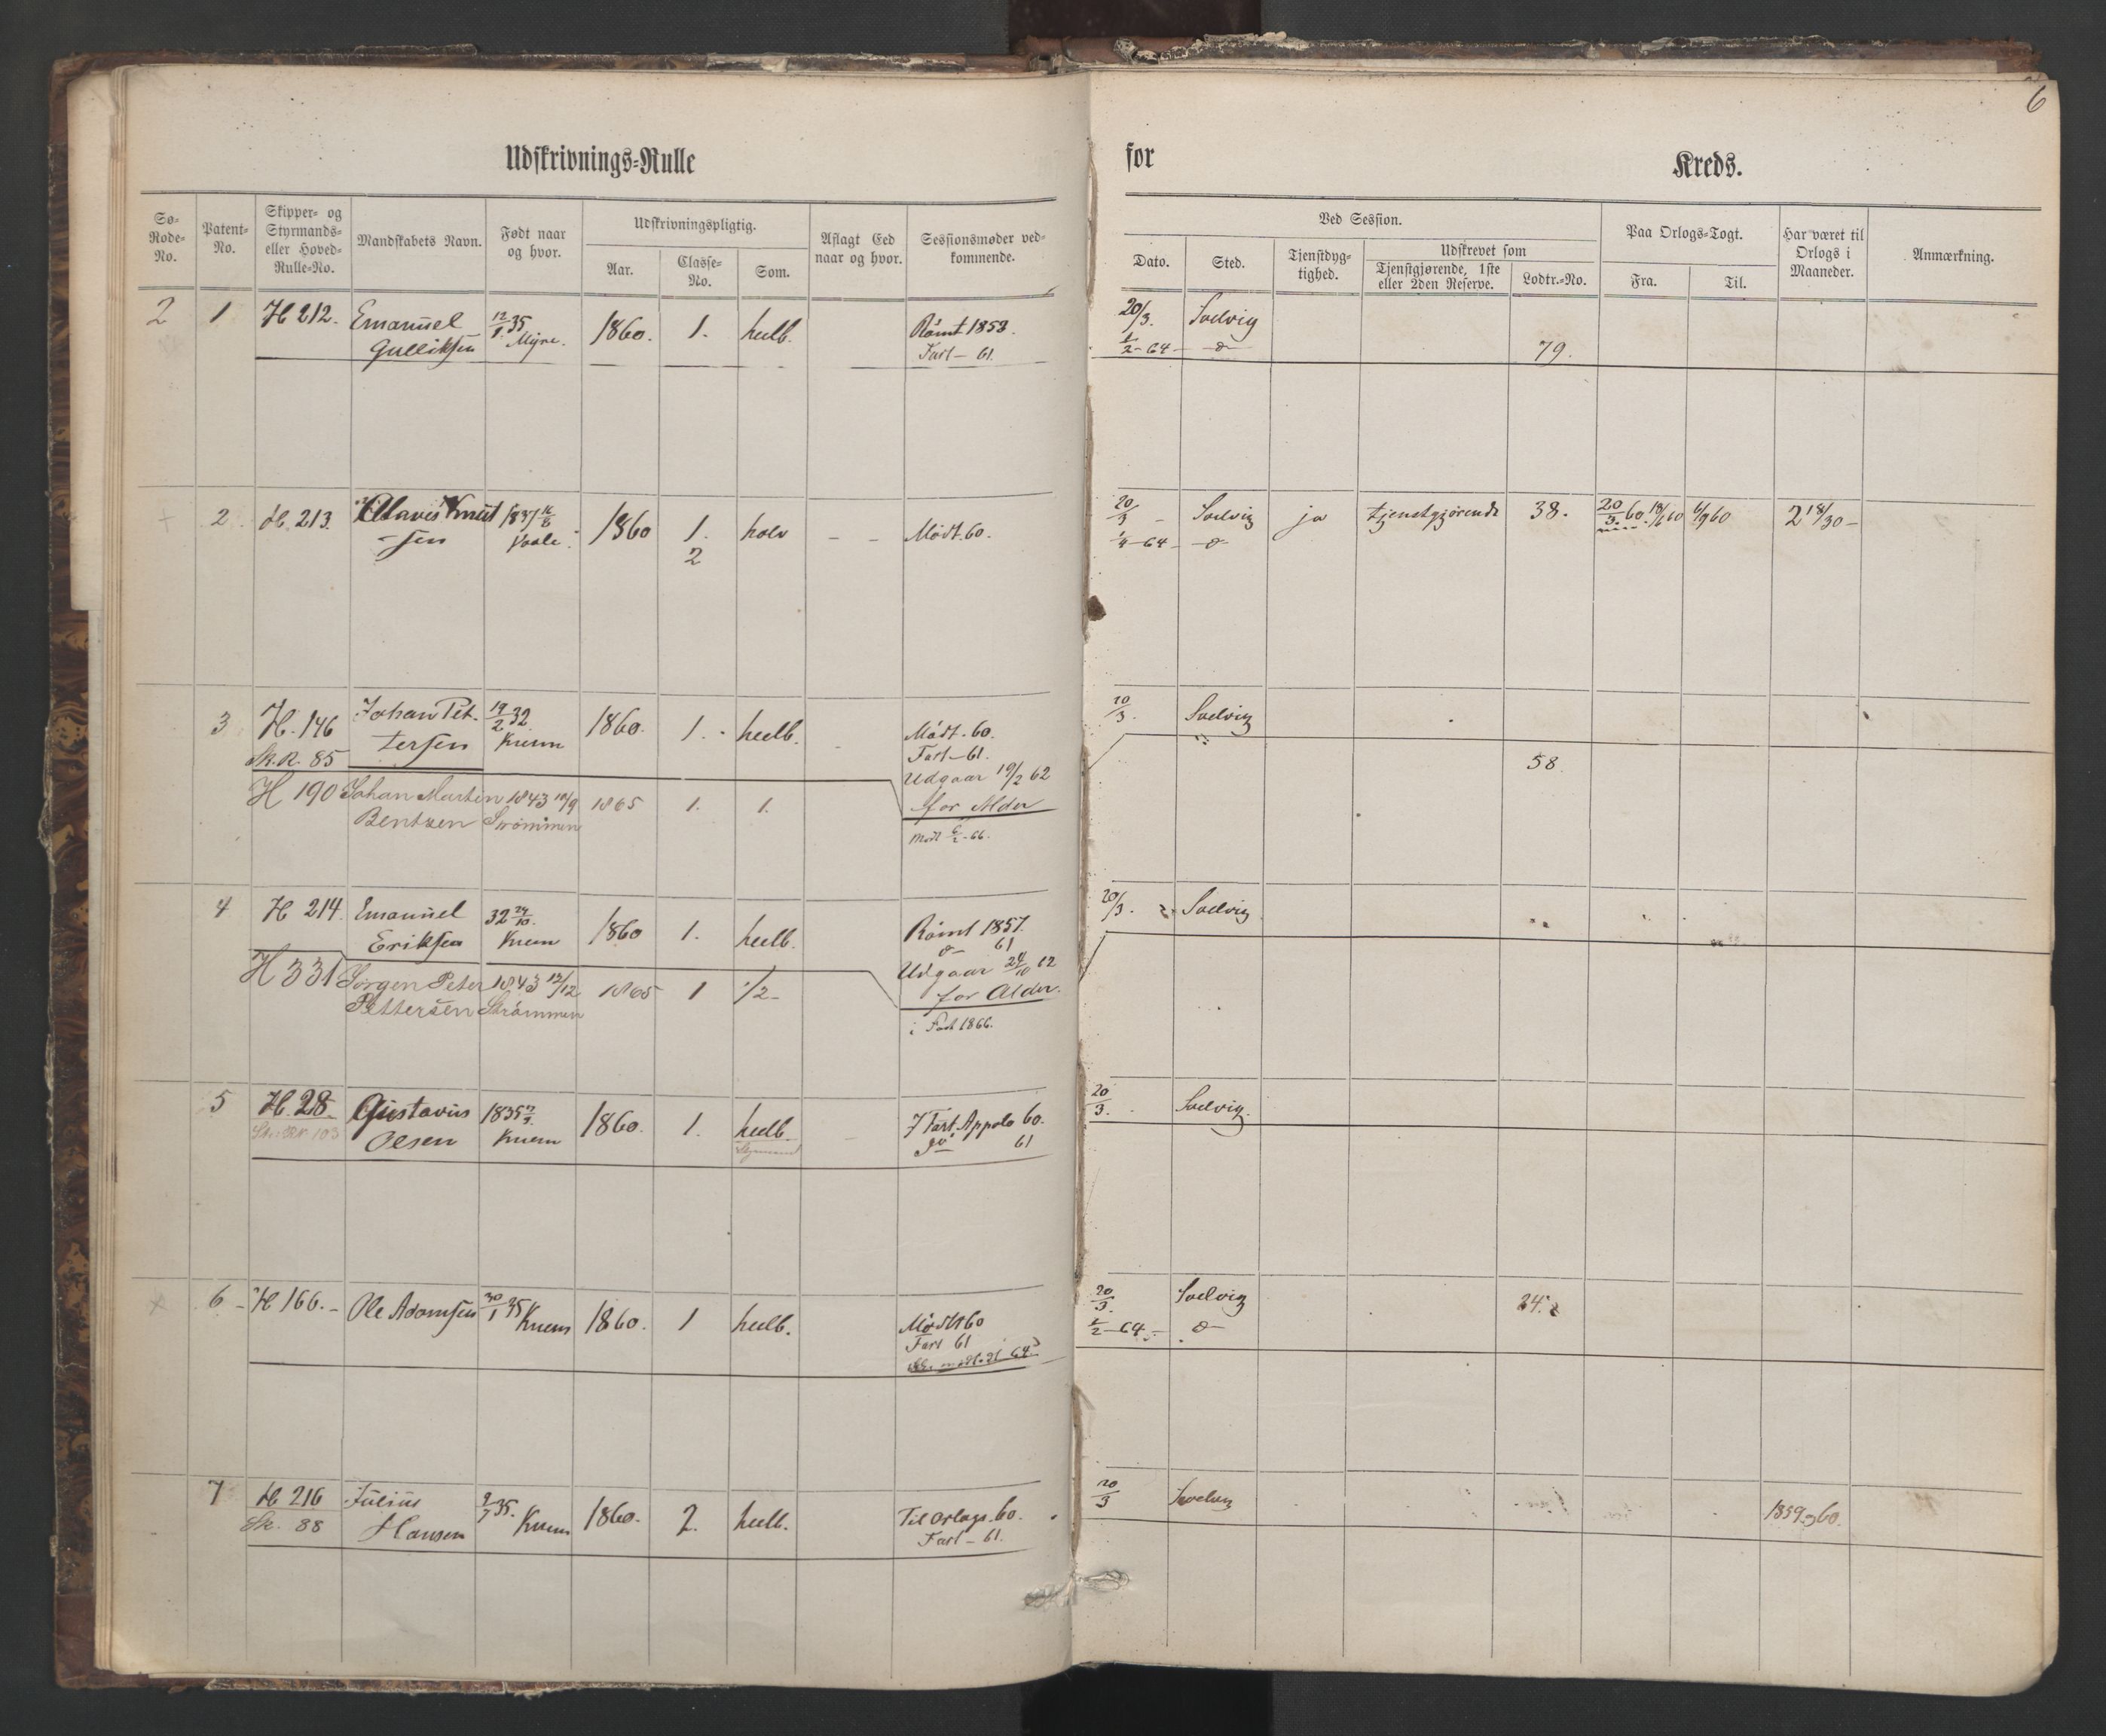 6
Udskrivnings-Rulle for Kreds.
Sø-Rode-No. Patent-No. Skipper- og Styrmands- eller Hoved-Rulle-No. Mandskabets Navn. Født naar og hvor. Udskrivningspligtig. Aflagt Eed naar og hvor. Sessionsmøder vedkommende.
Aar. Classe-No. Som.
Ved Session. Paa Orlogs-Togt. Har været til Orlogs i Maaneder. Anmærkning.
Dato. Sted. Tjenstdygtighed. Udskrevet som Fra. Til.
Tjenstgjørende, 1ste eller 2den Reserve. Lodtr.-No.
2 1 H 212. Emanuel 12/1 35 1860. 1. heelb. Rømt 1853. 20/3. Soelvig
Gulliksen Myre. Fart - 61. 1/2 - 64 - d- 79.
2 H. 213. Knut 1837 16/8 1860 1. halv - - Mødt. 60. 20/3 - Soelvig ja tjenstgjørende 38. 20/3 60. 18/6 60 6/9 60 2 18/30 -
-sen 2 - 64 - d-
3 H. 146 Johan Pet- 19/2 32 1860. 1. heelb. Mødt. 60. 20/3. Soelvig
tersen Knem Fart - 61.
Sk. R. 85 Udgaar 19/2 62 58
H 190 Johan Martin 1843 1865 1. 1. for Alder
Bentzen Strømmen Mødt 6/2 - 66.
4 H 214. Emanuel 32 24/10. 1860 1. heelb. Rømt 1857. 20/3. Soelvig
Eriksen Knem d- 61
H 331 Jørgen Peter 1843 12/12 1865 1 1/2- Udgaar 24/10 62
Pettersen Strømmen for Alder.
i Fart 1866.
5 H. 218 Gustavus 1835 1860. 1. heelb. I Fart Appolo 60. 20/3. Soelvig.
103 Olsen Knem Styrmand 61
6 - H 166. - Ole Adamsen 30/1 35 Knem 1860. 1 heelb. Mødt 60 20/3. Soelvig 34.
Fart 61 1/2 - 64 - d-
64.
7 H 216 Julius 9/7 35. 1860. 2. heelb. Til Orlogs. 60. 20/3 Soelvig 1859-60.
Sk. 88 Hansen Knem Fart - 61.